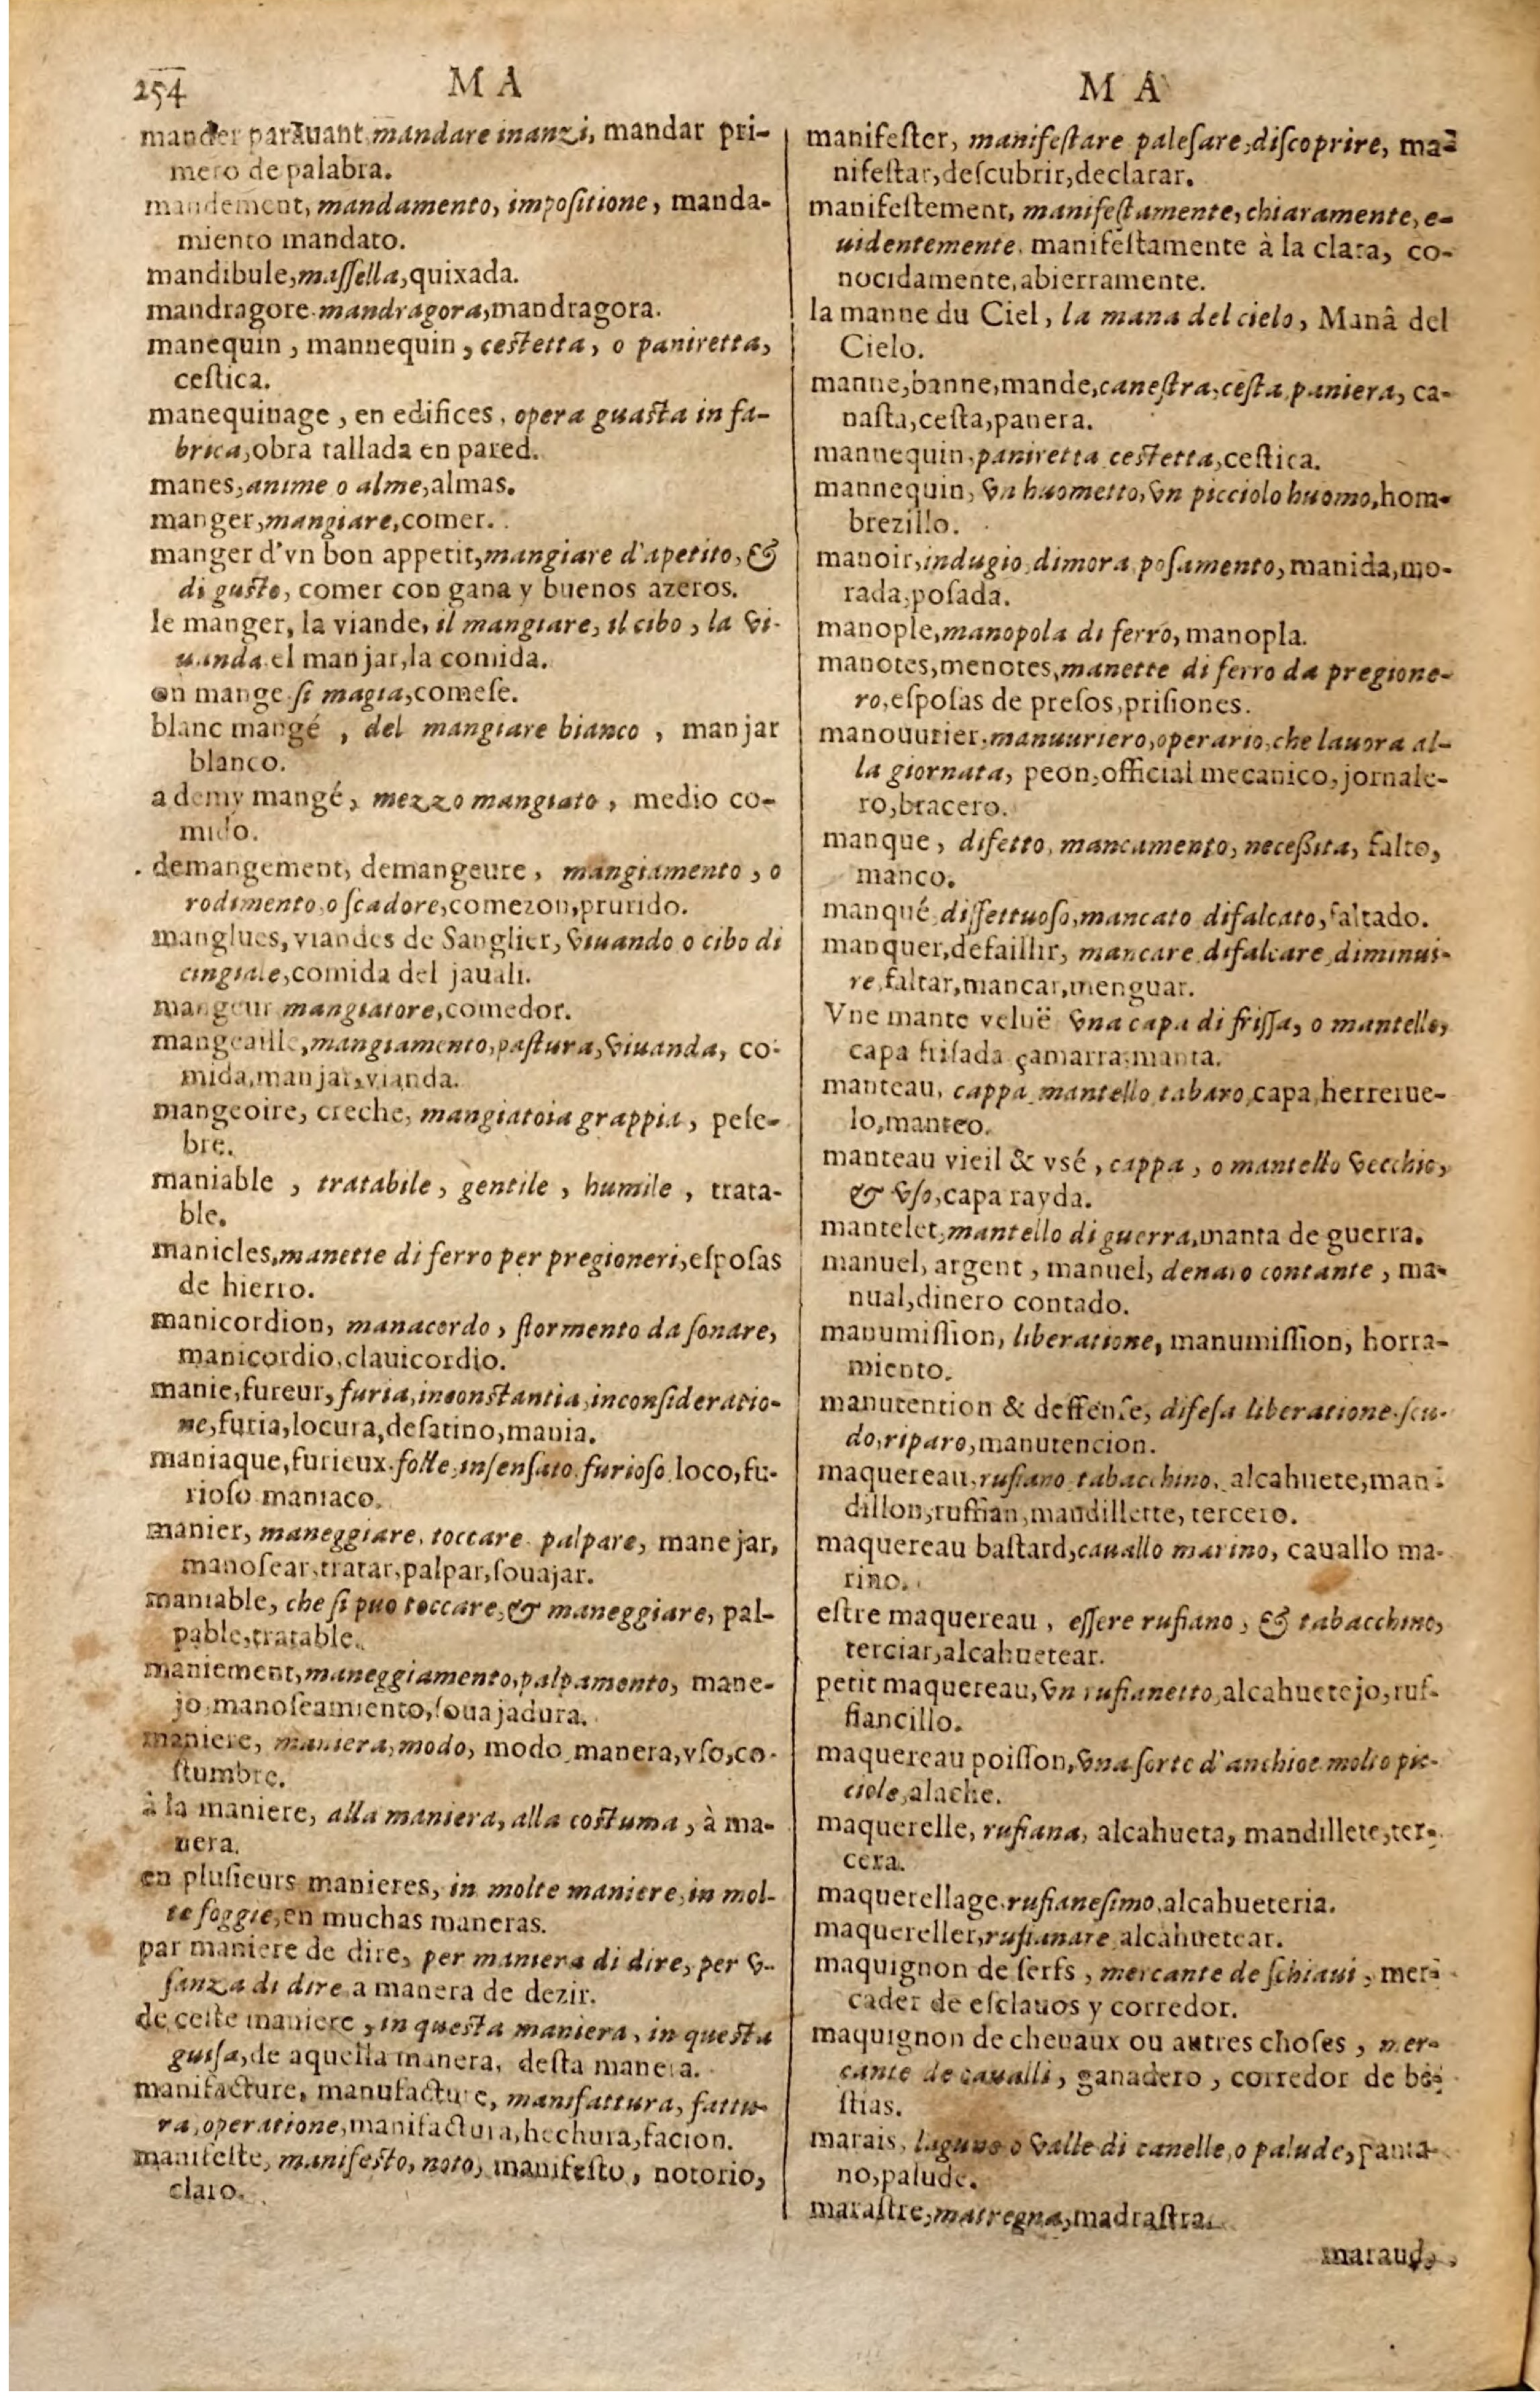 254
MA
mander parauant mandare inanzi, mandar pri-
mero de palabra.
mandement, mandamento, impoſitione, manda-
miento mandato.
mandibule, maſſella, quixada.
mandragore. mandragora, mandragora.
manequin, mannequin, ceſtetta, o paniretta,
ceſtica.
manequinage, en edifices, opera guaſta in fa-
brica, obra tallada en pared.
manes, anime o alme, almas.
manger, mangiare, comer.
manger d'vn bon appetit, mangiare d'apetito, &
di guſto, comer con gana y buenos azeros.
le manger, la viande, il mangiare, il cibo, la vi-
uanda el manjar, la comida.
on mange ſi magia, comeſe.
blanc mangé, del mangiare bianco, manjar
blanco.
a demy mangé, mezzo mangiato, medio co-
mido.
demangement, demangeure, mangiamento, o
rodimento o ſcadore, comezon, prurido.
manglues, viandes de Sanglier, viuando o cibo di
cingiale, comida del jauali.
mangeur mangiatore, comedor.
mangeaille, mangiamento, paſtura, viuanda, co-
mida, manjar, vianda.
mangeoire, creche, mangiatoia grappia, peſe-
bre.
maniable, tratabile, gentile, humile, trata-
ble.
manicles, manette di ferro per pregioneri, eſpoſas
de hierro.
manicordion, manacordo, ſtormento da ſonare,
manicordio, clauicordio.
manie, fureur, furia, inconſtantia, inconſideratio-
ne, furia, locura, deſatino, mania.
maniaque, furieux. folle, inſenſato furioſo loco, fu-
rioſo maniaco.
manier, maneggiare, toccare palpare, manejar,
manoſear, tratar, palpar, ſouajar.
maniable, che ſi puo toccare, & maneggiare, pal-
pable, tratable.
maniement, maneggiamento, palpamento, mane-
jo, manoſeamiento, ſouajadura.
maniere, maniera, modo, modo, manera, vſo, co-
ſtumbre.
à la maniere, alla maniera, alla coſtuma, à ma-
nera.
en pluſieurs manieres, in molte maniere, in mol-
te foggie, en muchas maneras.
par maniere de dire, per maniera di dire, per v-
ſanza di dire a manera de dezir.
de ceſte maniere, in queſta maniera, in queſta
guiſa, de aquella manera, deſta manera.
manifacture, manufacture, manifattura, fattu-
ra, operatione, manifactura, hechura, facion.
manifeſte, manifeſto, noto, manifeſto, notorio,
claro.
MA
manifeſter, manifeſtare paleſare, diſcoprire, ma-
nifeſtar, deſcubrir, declarar.
manifeſtement, manifeſtamente, chiaramente, e-
uidentemente. manifeſtamente à la clara, co-
nocidamente, abierramente.
la manne du Ciel, la mana del cielo, Manâ del
Cielo.
manne, banne, mande, caneſtra, ceſta paniera, ca-
naſta, ceſta, panera.
mannequin, paniretta ceſtetta, ceſtica.
mannequin, vn huometto, vn picciolo huomo, hom-
brezillo.
manoir, indugio, dimora poſamento, manida, mo-
rada, poſada.
manople, manopola di ferro, manopla.
manotes, menotes, manette di ferro da pregione-
ro, eſpoſas de preſos, priſiones.
manouurier, manuuriero, operario, che lauora al-
la giornata, peon, official mecanico, jornale-
ro, bracero.
manque, difetto, mancamento, neceßita, falto,
manco.
manqué diffettuoſo, mancato difalcato, faltado.
manquer, defaillir, mancare difalcare diminui-
re faltar, mancar, menguar.
Vne mante veluë vna capa di friſſa, o mantello,
capa friſada çamarra, manta.
manteau, cappa mantello tabaro capa, herrerue-
lo, manteo.
manteau vieil & vſé, cappa, o mantello vecchio,
& vſo, capa rayda.
mantelet, mantello di guerra, manta de guerra.
manuel, argent, manuel, denaio contante, ma-
nual, dinero contado.
manumiſſion, liberatione, manumiſſion, horra-
miento.
manutention & deffenſe, difeſa liberatione ſcu-
do, riparo, manutencion.
maquereau, rufiano tabacchino, alcahuete, man-
dillon, ruffian, mandillette, tercero.
maquereau baſtard, cauallo marino, cauallo ma-
rino.
eſtre maquereau, eſſere rufiano, & tabacchino,
terciar, alcahuetear.
petit maquereau, vn rufianetto, alcahuetejo, ruf-
fiancillo.
maquereau poiſſon, vna ſorte d'anchioe molto pic-
ciole, alache.
maquerelle, rufiana, alcahueta, mandillete, ter-
cera.
maquerellage. rufianeſimo, alcahueteria.
maquereller, rufianare alcahuetear.
maquignon de ſerfs, mercante de ſchiaui, mer-
cader de eſclauos y corredor.
maquignon de cheuaux ou autres choſes, mer-
cante de caualli, ganadero, corredor de be-
ſtias.
marais, laguno o valle di canelle, o palude, panta-
no, palude.
maraſtre, matregna, madraſtra.
maraud,